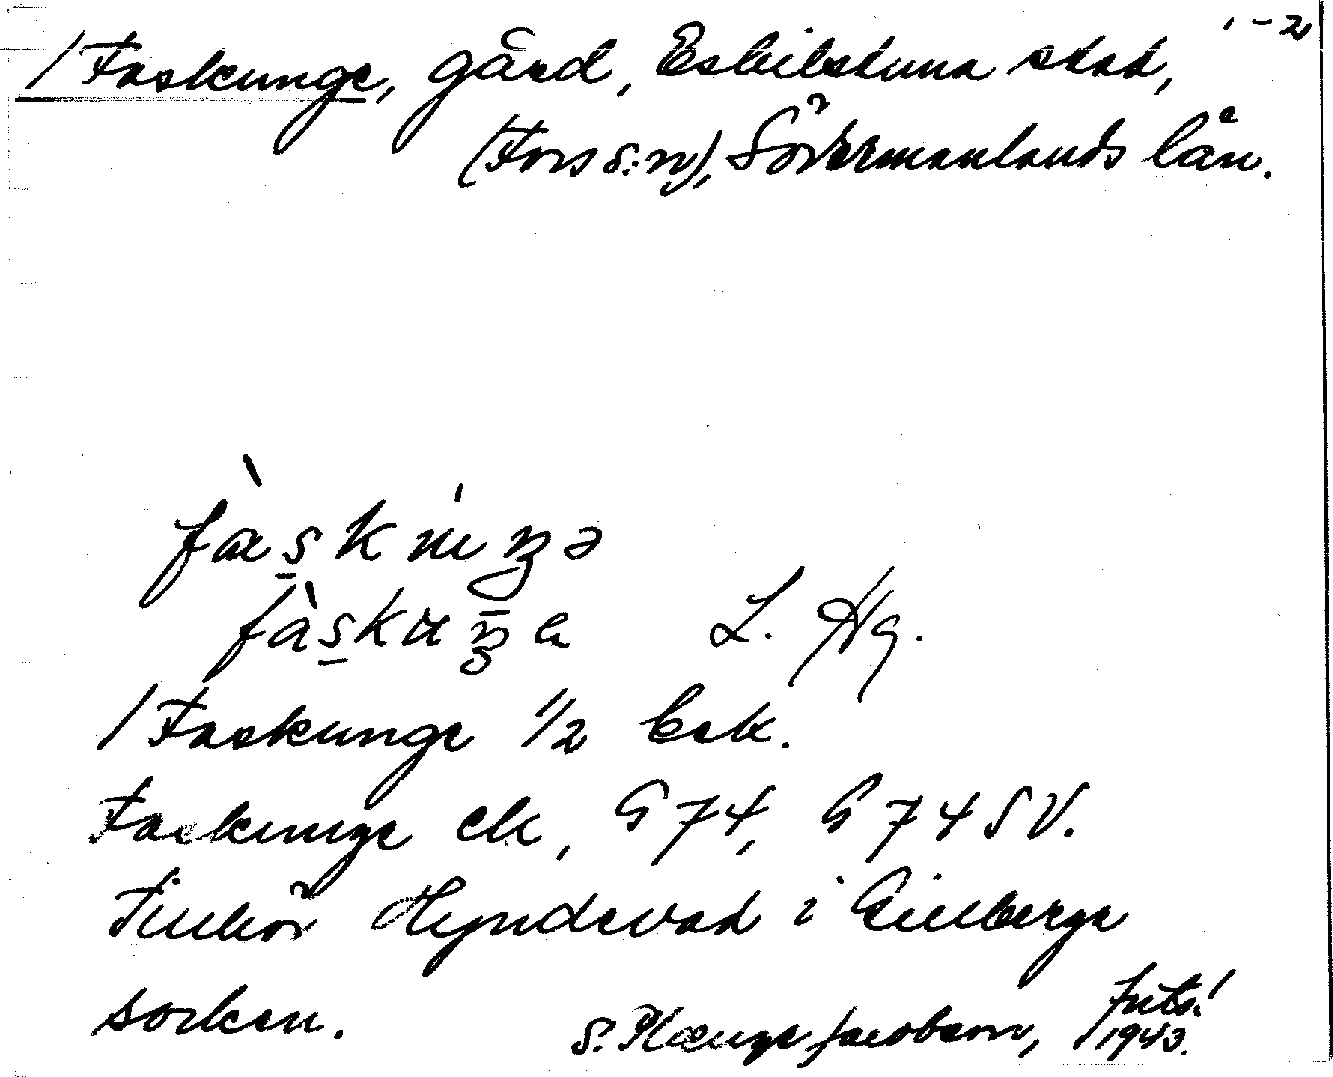 1-2
/Faskunge, gård, Eskilstuna stad,
(Fors s:n), Södermanlands län.
fàskuŋə
fàskuŋa L. Hg.
/Faskunge 1/2 
Faskunge ek, G 74, G 74 SV.
Tillhör Hyndevad i Gillberga
socken.
S. Plænge Jacobson, 
1943.